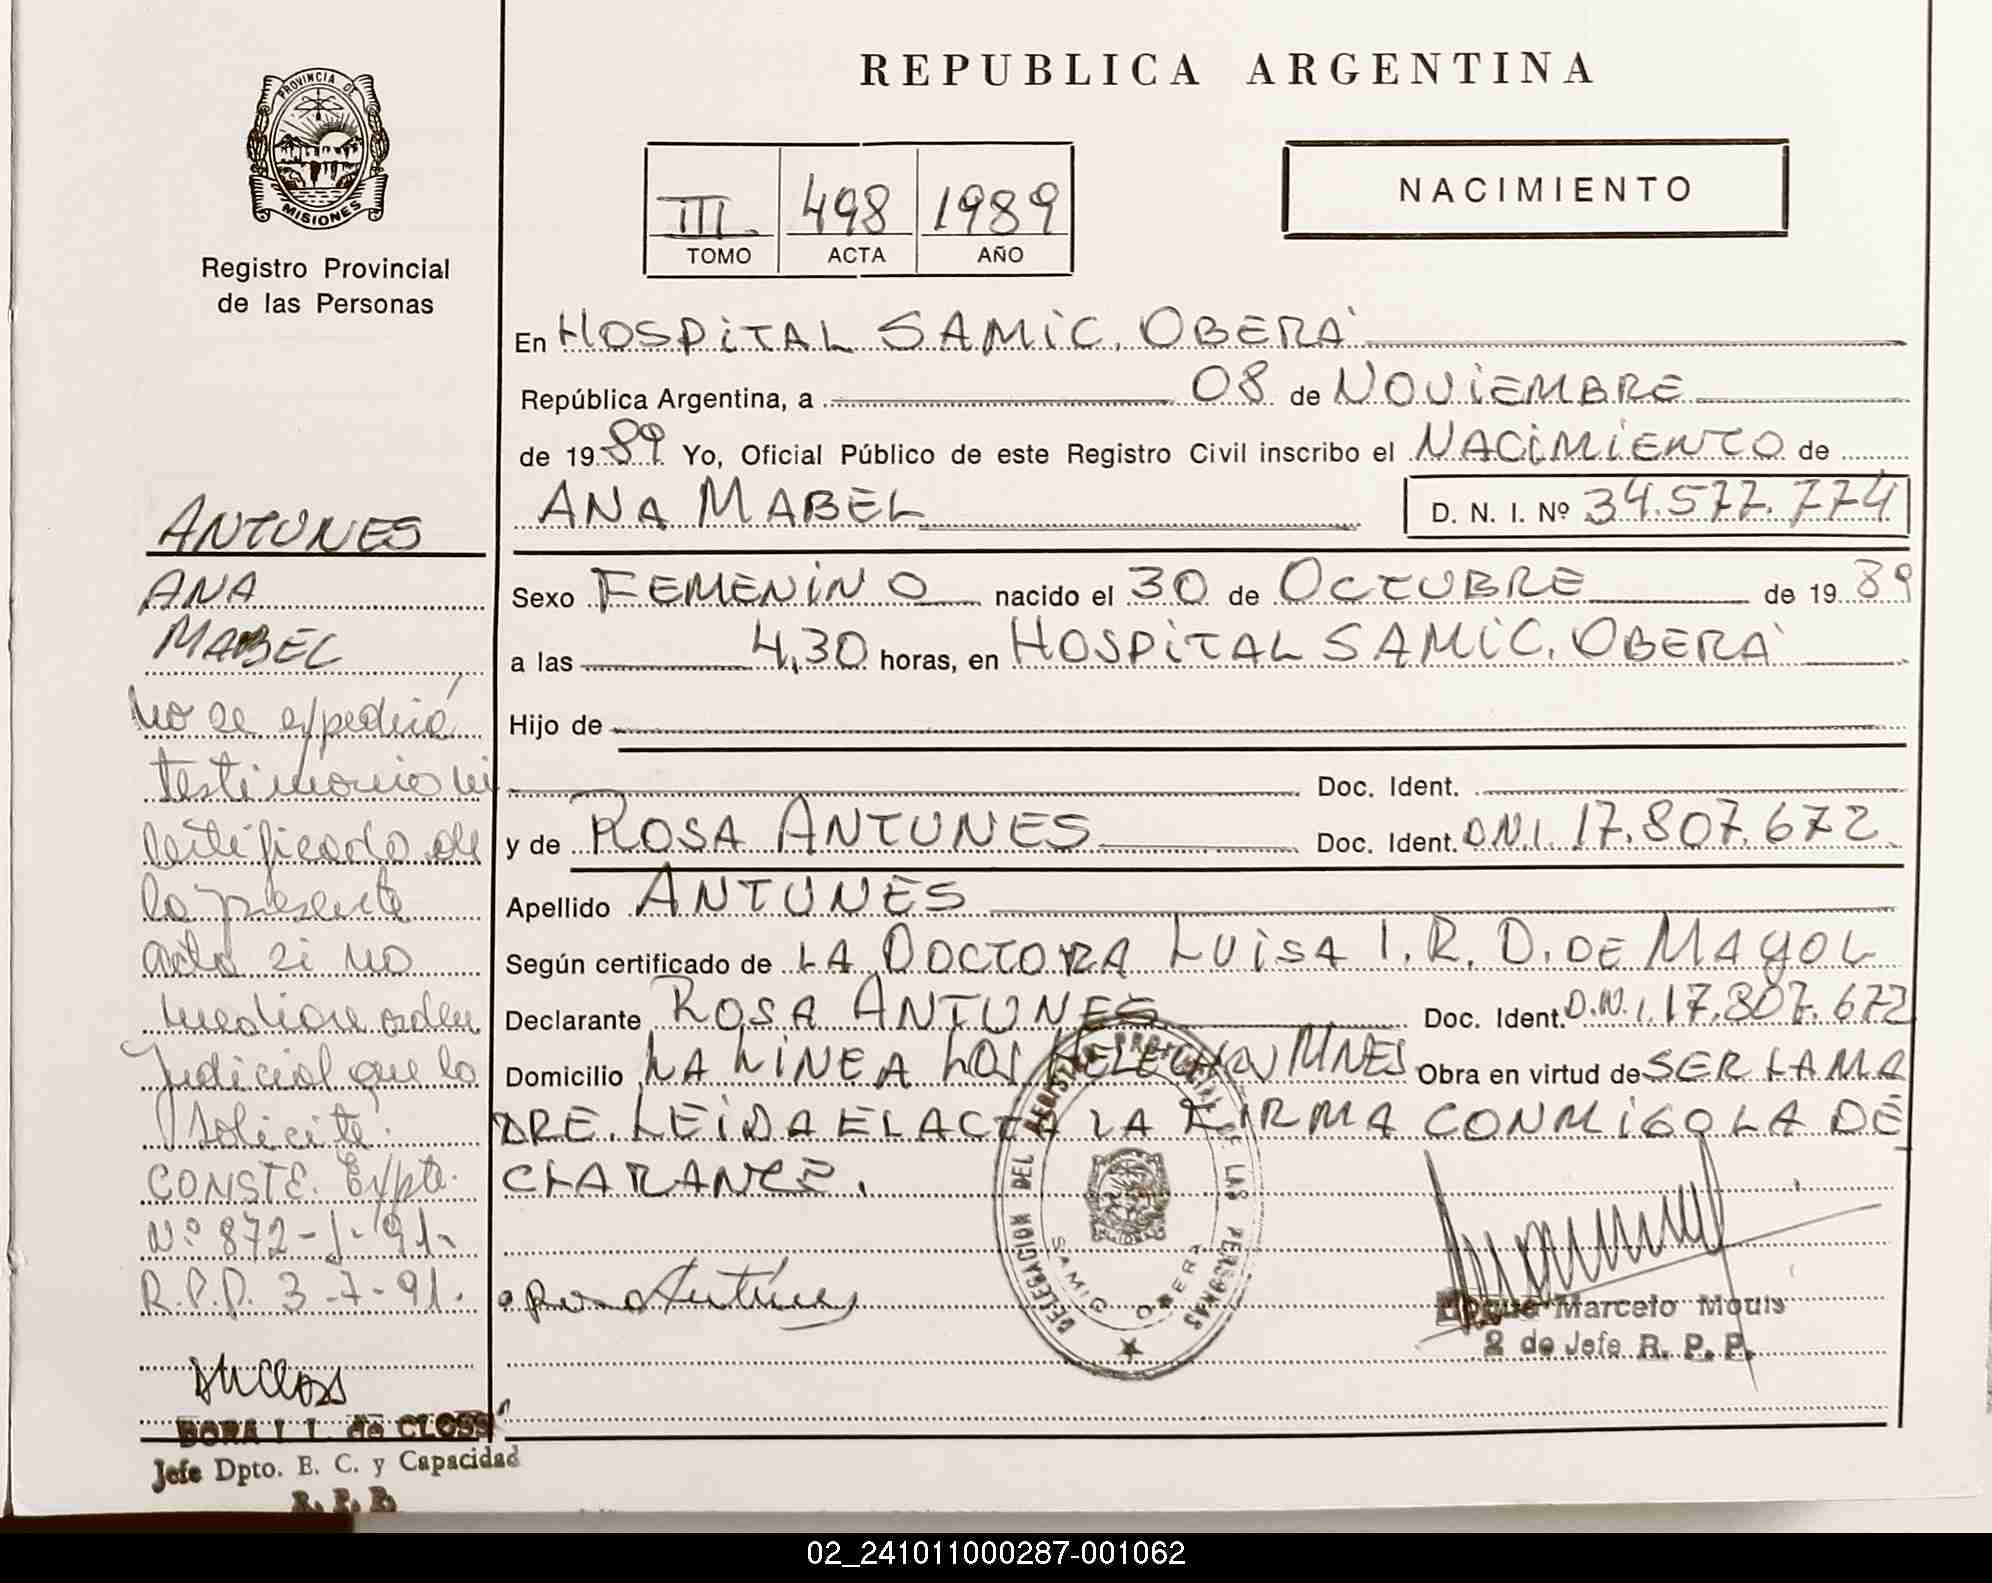 REPUBLICA ARGENTINA
PROVINCIA DE
MISIONES
Registro Provincial
de las Personas
III
498
1989
TOMO
ACTA
AÑO
NACIMIENTO
En HOSPITAL SAMIC. OBERÁ
República Argentina, a 08 de NOVIEMBRE
de 1989 Yo, Oficial Público de este Registro Civil inscribo el NACIMIENTO de
ANA MABEL D. N. I. Nº 34.577.774
Sexo FEMENINO nacido el 30 de OCTUBRE de 1989
a las 4,30 horas, en HOSPITAL SAMIC. OBERÁ
Hijo de
Doc. Ident.
y de ROSA ANTUNES Doc. Ident. D.N.I. 17.807.672
Apellido ANTUNES
Según certificado de LA DOCTORA LUISA I. R. D. DE MAYOL
Declarante ROSA ANTUNES Doc. Ident. D.N.I. 17.807.672
Domicilio LA LINEA LOS HELECHOS MNES Obra en virtud de SER LA MA
DRE. LEIDA EL ACTA LA FIRMA CONMIGO LA DE
CLARANTE.
ANTUNES
ANA
MABEL
No se expedirá
testimonio ni
certificado de
la presente
acta si no
mediare orden
Judicial que lo
solicite.
CONSTE. Expte.
Nº 872-J-91.
R.P.P. 3-7-91.
Rosa Antúnes
DELEGACION DEL REGISTRO PROVINCIAL DE LAS PERSONAS
SAMIC OBERA
Marcelo
2 do Jefe R. P. P.
de CLOSS
Jefe Dpto. E. C. y Capacidad
R. P. P.
02_241011000287-001062